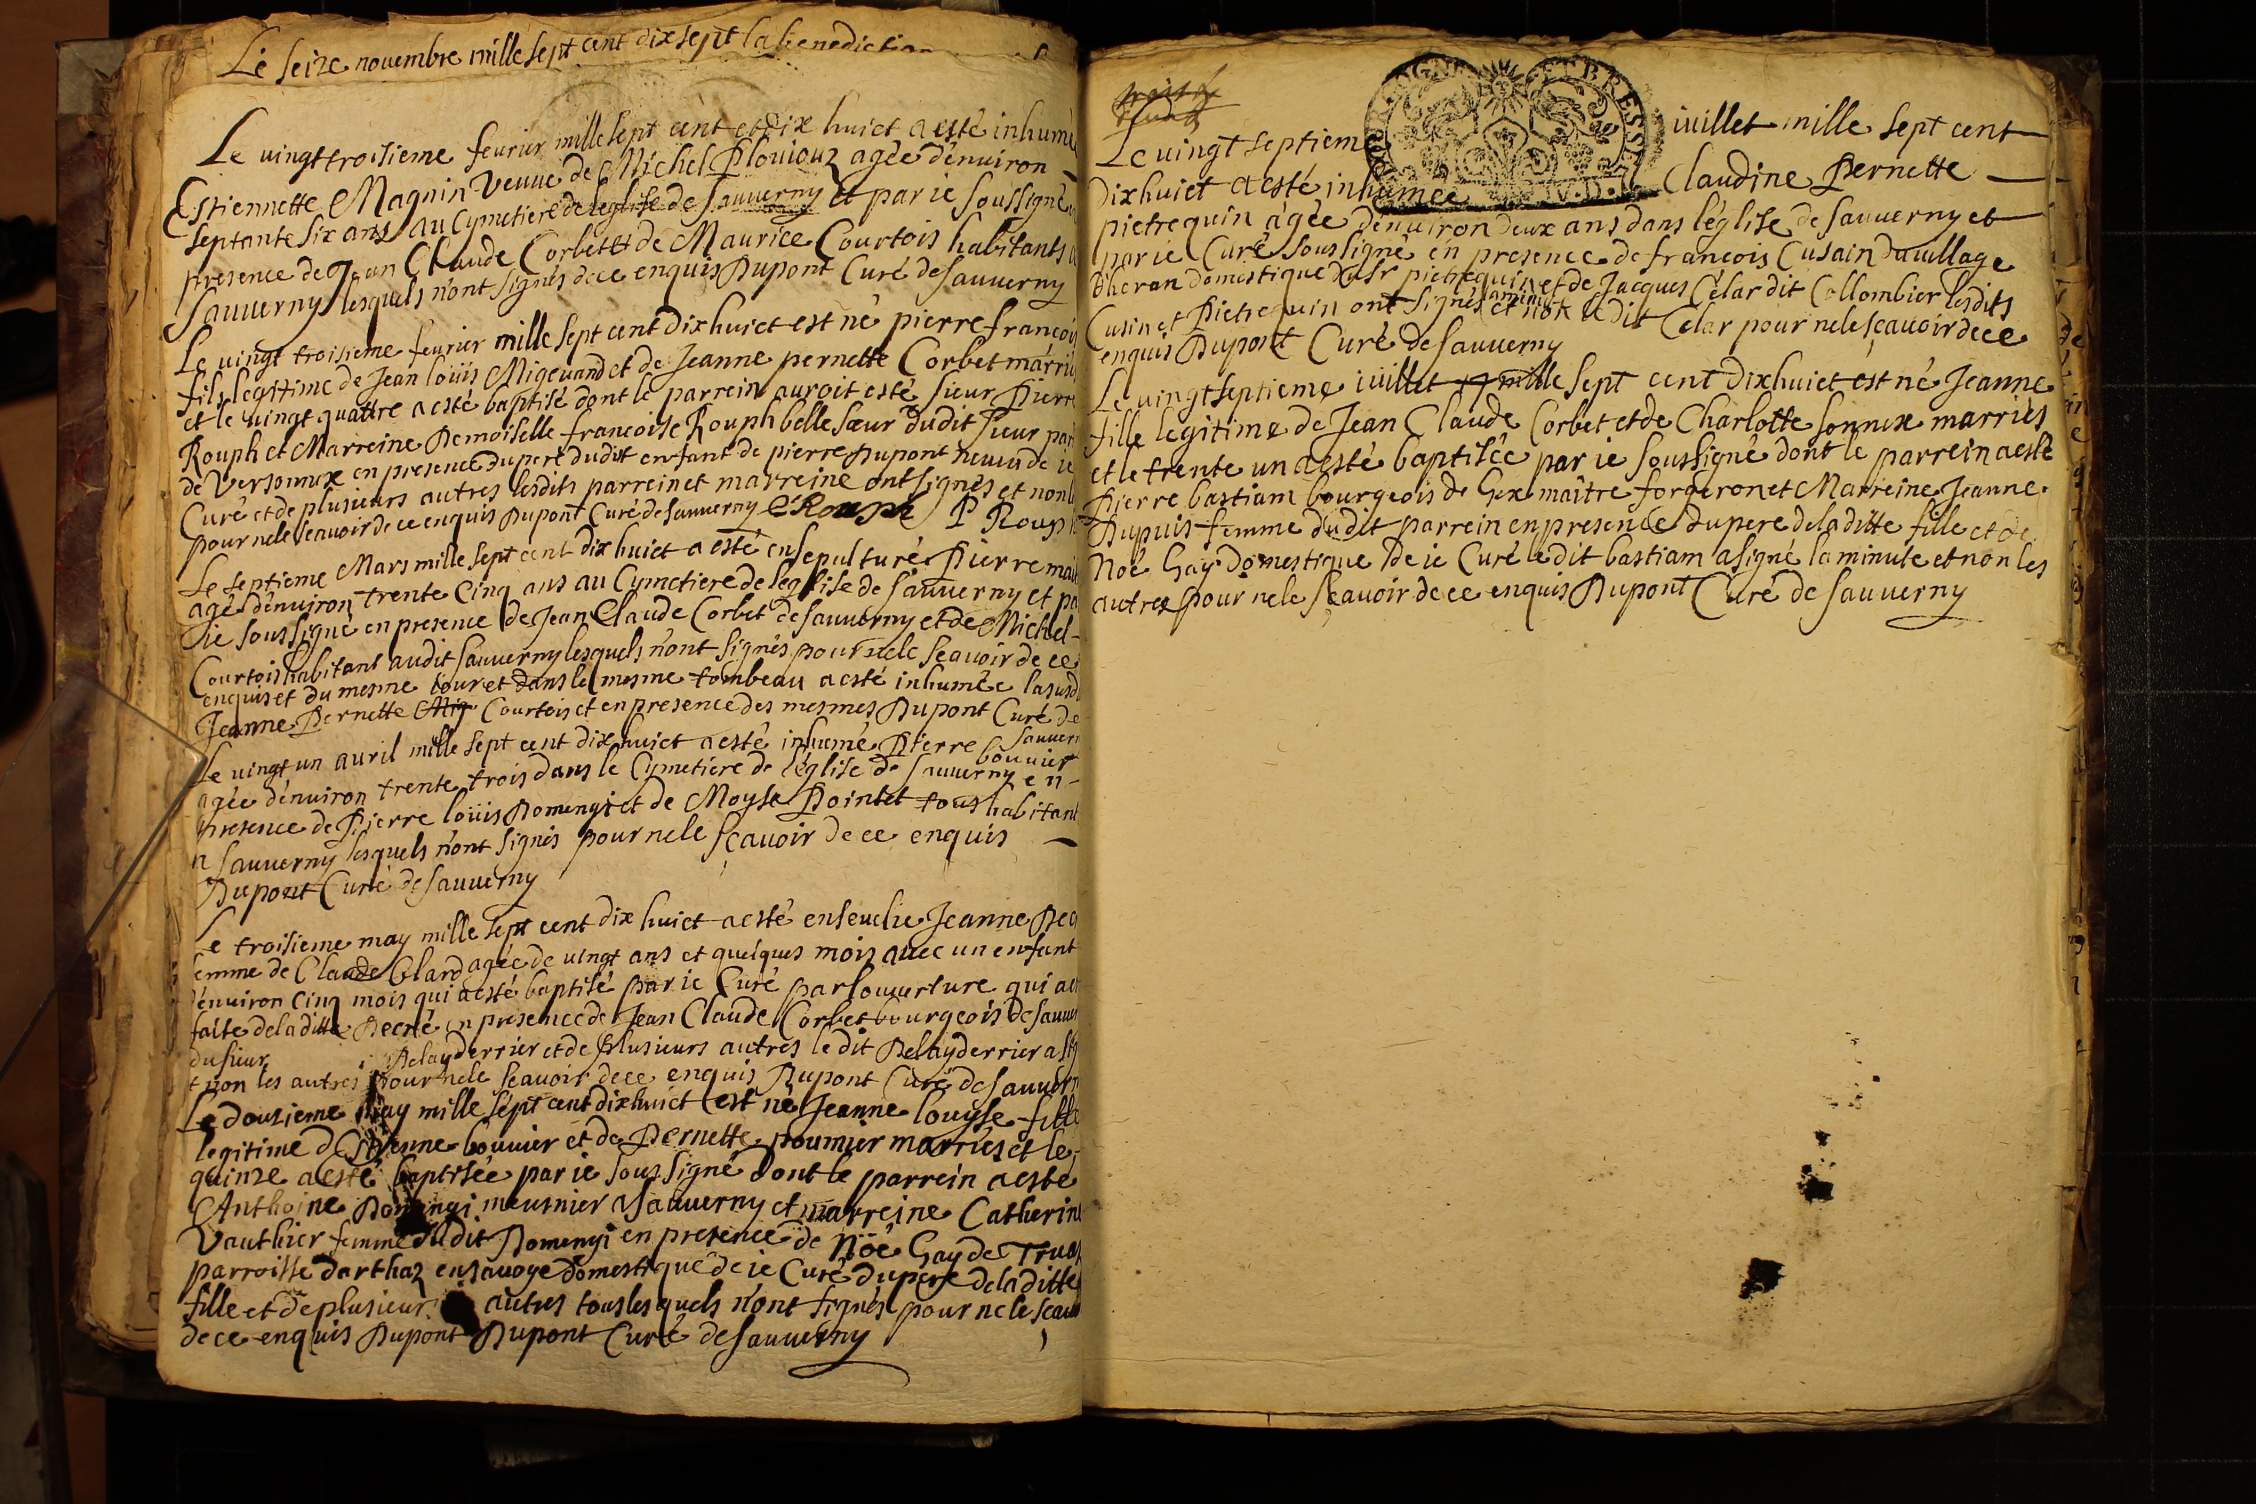 Le seize novembre mille sept cent dix sept la benediction
Le vingt troisieme feurier mille sept cent et dix huict a esté inhumé
Estiennette Magnin Veuue de Michel Plouiouz agée d'enuiron
septante six ans au Cymetiere de leglise de sauuerny et par ie soussigné
presence de Jean Claude Corbet et de Maurice Courtois habitants
sauuerny lesquels n'ont signés de ce enquis Dupont Curé de sauuerny
Le vingt troisieme feurier mille sept cent dix huict est né pierre francois
fils legitime de Jean loüis Migeuand et de Jeanne pernette Corbet marriés
et le vingt quattre a esté baptisé dont le parrein auroit esté sieur Pierre
Rouph et Marreine Demoiselle francoise Rouph belle sœur dudit sieur par
de Versonnex en presence du pere dudit enfant de pierre Dupont neueu de ie
Curé et de plusieurs autres lesdits parrein et marreine ont signés et non
pour ne le scauoir de ce enquis Dupont Curé de sauuerny Rouph P Rouph
Le septieme Mars mille sept cent dix huict a esté ensepulturé Pierre
agé d'enuiron trente Cinq ans au Cymetiere de leglise de sauuerny et pa
ie soussigné en presence de Jean Claude Corbet de sauuerny et de Michel
Courtois habitant audit sauuerny lesquels n'ont signés pour ne le scauoir de ce
enquis et du mesme iour et dans le mesme tombeau a esté inhumée la
Jeanne Pernette Mig Courtois et en presence des mesmes Dupont Curé de
sauuern
Le vingt un auril mille sept cent dix huict a esté inhumé Pierre bouuier
agée d'enuiron trente trois dans le Cymetiere de l'église de sauuerny en
presence de Pierre loüis Domengi et de Moyse Pointet tous habitant
a sauuerny lesquels n'ont signés pour ne le sçauoir de ce enquis
Dupont Curé de sauuerny
Le troisieme may mille sept cent dix huict a esté enseuelie Jeanne
femme de Claude Clard agée de vingt ans et quelques mois auec un enfant
d'enuiron cinq mois qui a esté baptisé par ie Curé par louuerture qui a
faite de la ditte Decré en presence de Jean Claude Corbet bourgeois de sauuer
du sieur Delayderrier et de plusieurs autres le dit Delayderrier a sig
et non les autres pour ne le scauoir de ce enquis Dupont Curé de sauuern
Le douzieme may mille sept cent dix huict est né Jeanne louyse fille
legitime d'Estienne bouuier et de Pernette poumier marriés et le
quinze a esté baptisée par ie soussigné dont le parrein a esté
Anthoine Domengi meusnier a sauuerny et marreine Catherine
Vauthier femme dudit Domengi en presence de Nöé Gay de
parroisse darthaz en sauoye domestique de ie Curé du pere de la ditte
fille et de plusieur autres tous lesquels n'ont signés pour ne le scauoir
de ce enquis Dupont Dupont Curé de sauuerny
ET BRESSE
Le vingt septieme iuillet mille sept cent
dix huict a esté inhumée Claudine Pernette
pietrequin agée d'enuiron deux ans dans léglise de sauuerny et
par ie Curé soussigné en presence de francois Cusain du uillage
domestique du sr pietrequin et de Jacques Célar dit Collombier lesdits
laminute
Cusin et Pietrequin ont signés et non le dit Celar pour ne le scauoir de ce
enquis Dupont Curé de sauuerny
Le vingt septieme iuillet mille sept cent dix huict est né Jeanne
fille legitime de Jean Claude Corbet et de Charlotte sonnex marriés
et le trente un a esté baptisée par ie soussigné dont le parrein a esté
Pierre bastiam bourgeois de Gex maître forgeron et Marreine Jeanne
Dupuis femme dudit parrein en presence du pere de la ditte fille et de
Noé Gay domestique de ie Curé ledit bastiam a signé la minute et non les
autres pour ne le scauoir de ce enquis Dupont Curé de sauuerny